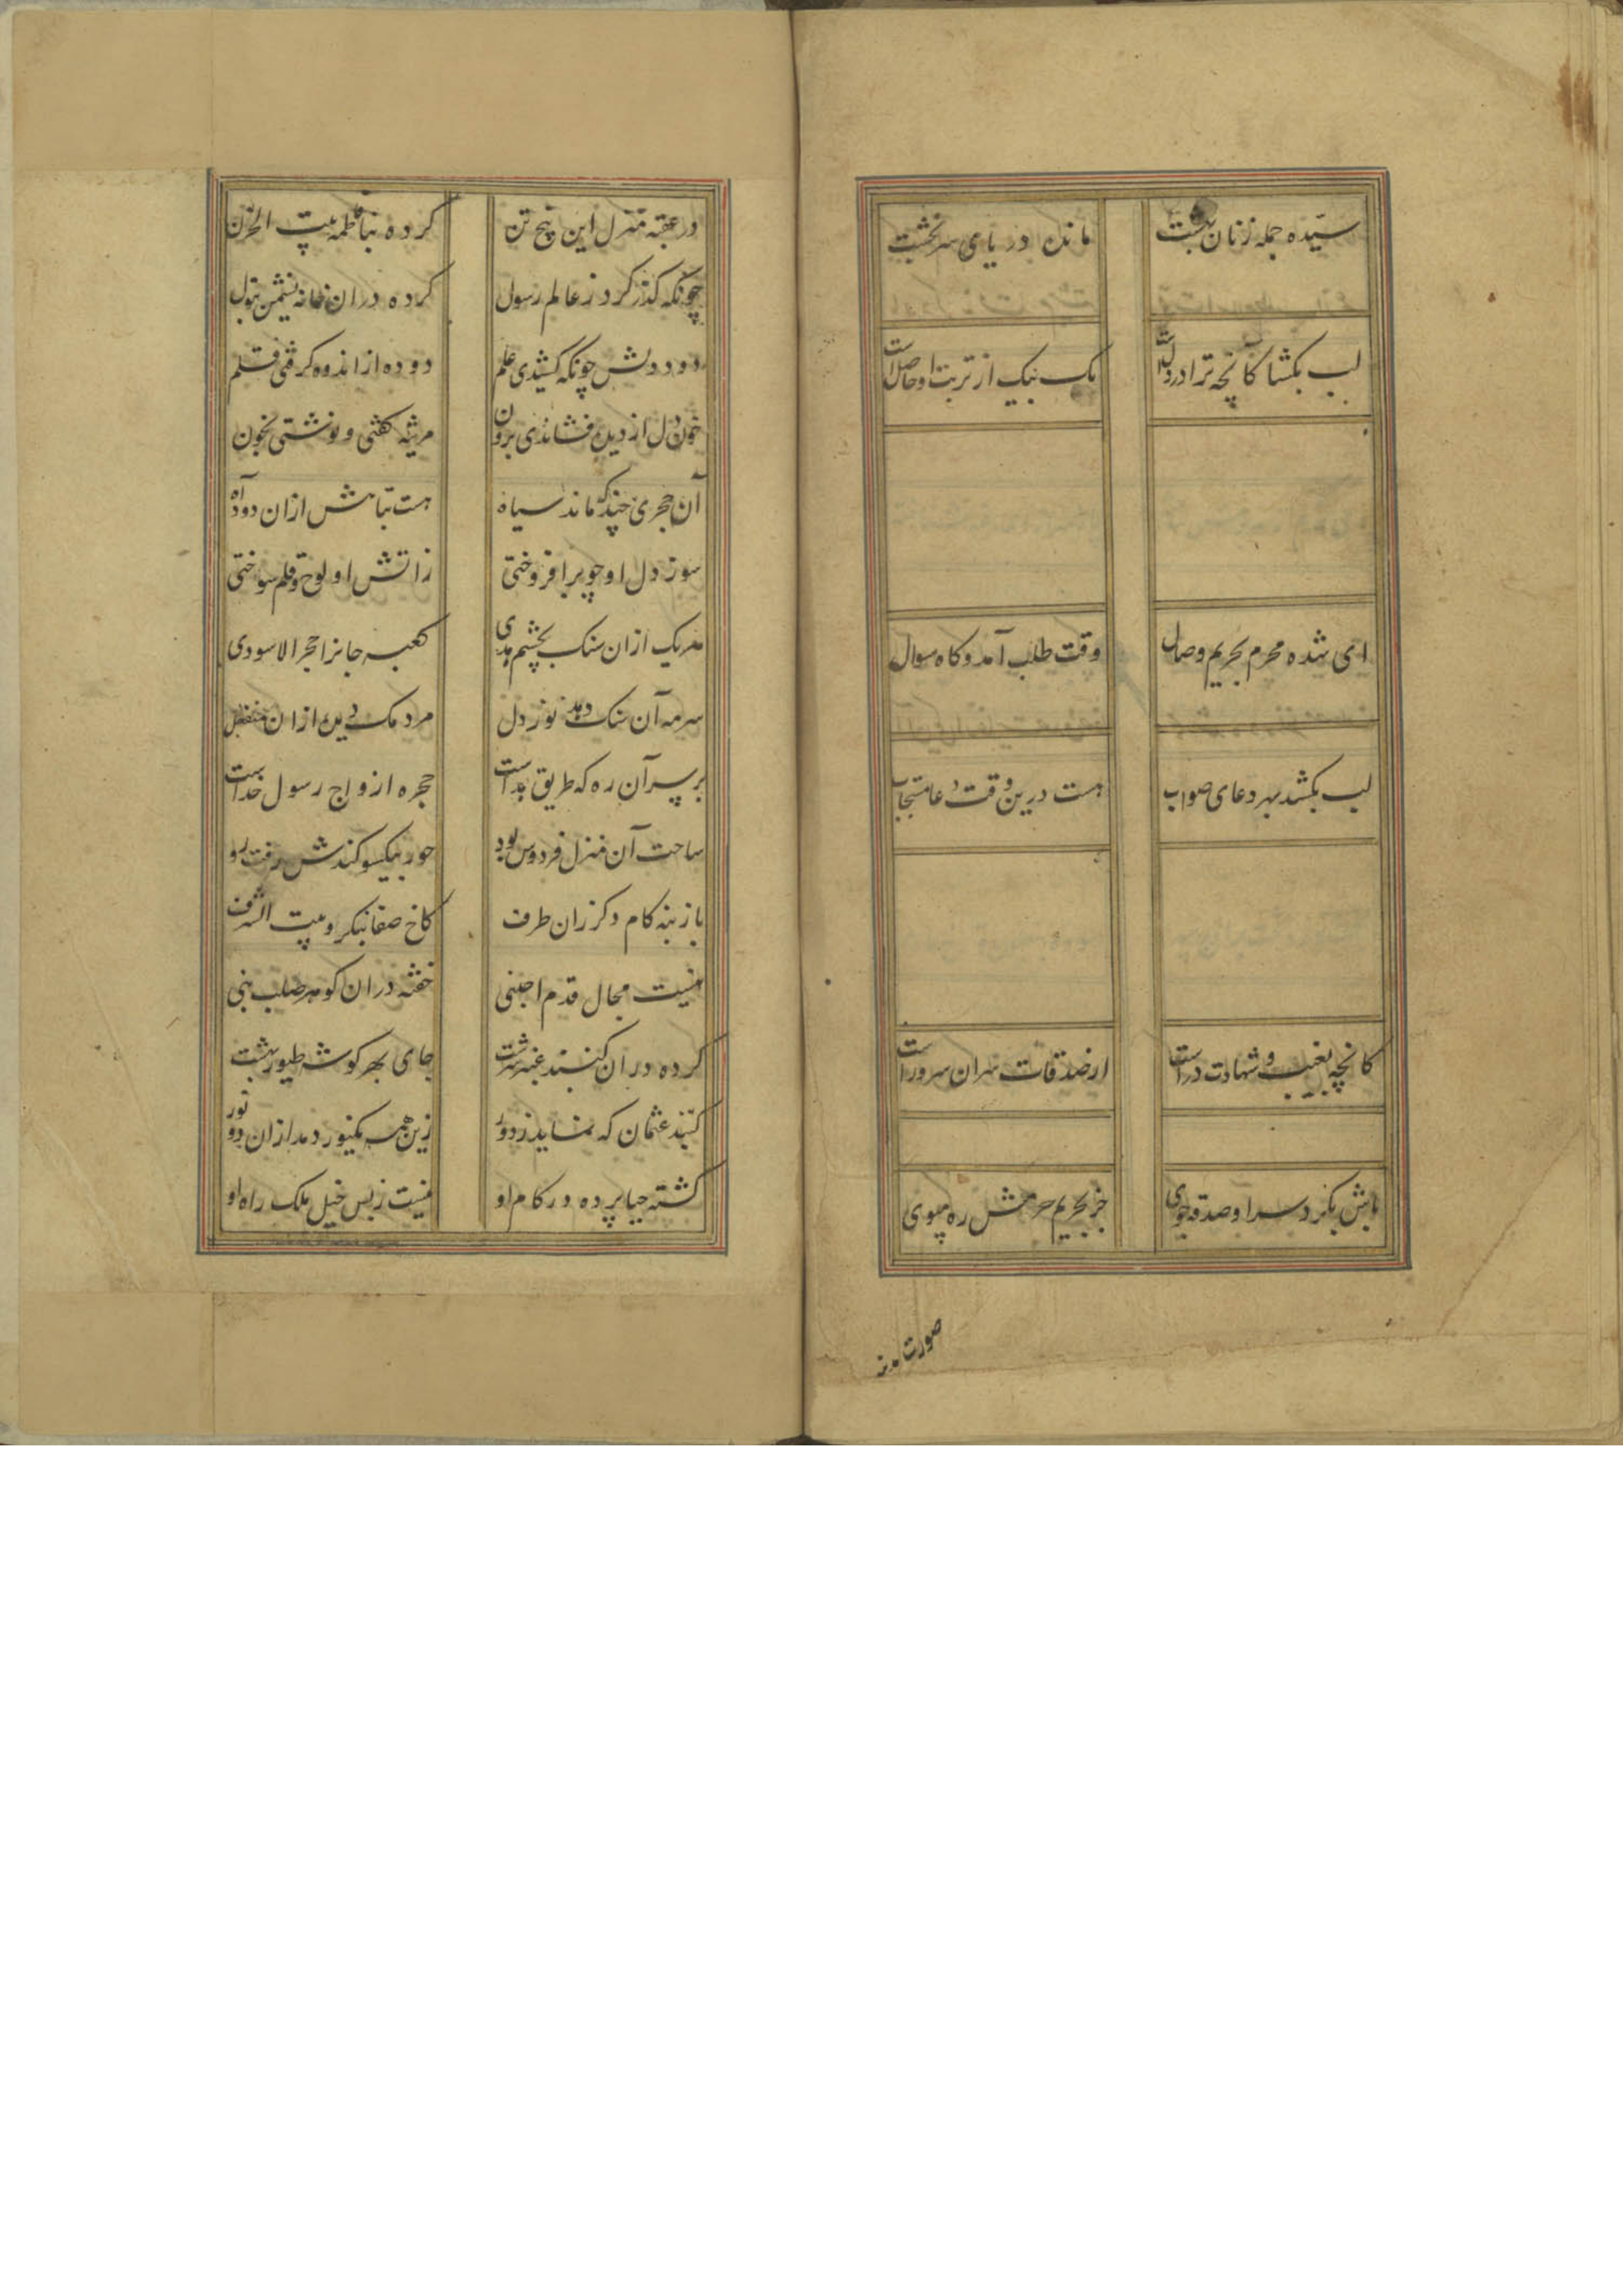 سیّده جمله زنان بهشت
مانده در پای سر خشت
لب بکشا کانچه ترا در دلست
یک بیک از تربت او حاصل است
ای شده محرم بحریم وصال
وقت طلب آمد و کاه سوال
لب بکشد بهر دعای صواب
هست درین وقت دعا مستجاب
کانچه بغیب و شهادت دراست
از صدقات سران سرور است
باش بکرد سرا و صدقه جوی
جز بحریم حرمش ره مپوی
صورت مدینه
در عقبه منزل این پنج تن
کرده بنا فاطمه بیت الحزن
چونکه کذر کرد ز عالم رسول
کرده دران خانه نشیمن بتول
دود دلش چونکه کشیدی علم
دوده از اندوه کرفتی قلم
خون دل از دیده فشاندی برون
مرثیه کفتی و نوشتی بخون
آن حجری چند که ماند سیاه
هست بتابش ازان دود آه
سوز دل او چو برافروختی
زاتش او لوح و قلم سوختی
هر یک ازان سنک بچشم هدی
کعبه جانرا حجر الاسودی
سرمه آن سنک دهد نور دل
مردمک دین ازان منفعل
بر سر آن ره که طریق هداست
حجره ازواج رسول خداست
ساحت آن منزل فردوس بود
حور بکیسو کندش رفت رو
باز بنه کام دکر زان طرف
کاخ صفا بنکر و بیت الشرف
نیست مجال قدم اجنبی
خفته دران کوهر صلب نبی
کرده دران کنبد عنبر سرشت
جای بهر کوشه طیور بهشت
کنبد عثمان که نماید ز دور
زین همه یکنور دمد ازان دو نور
کشته حیا پرده در کام او
نیست ز بس خیل ملک راه او